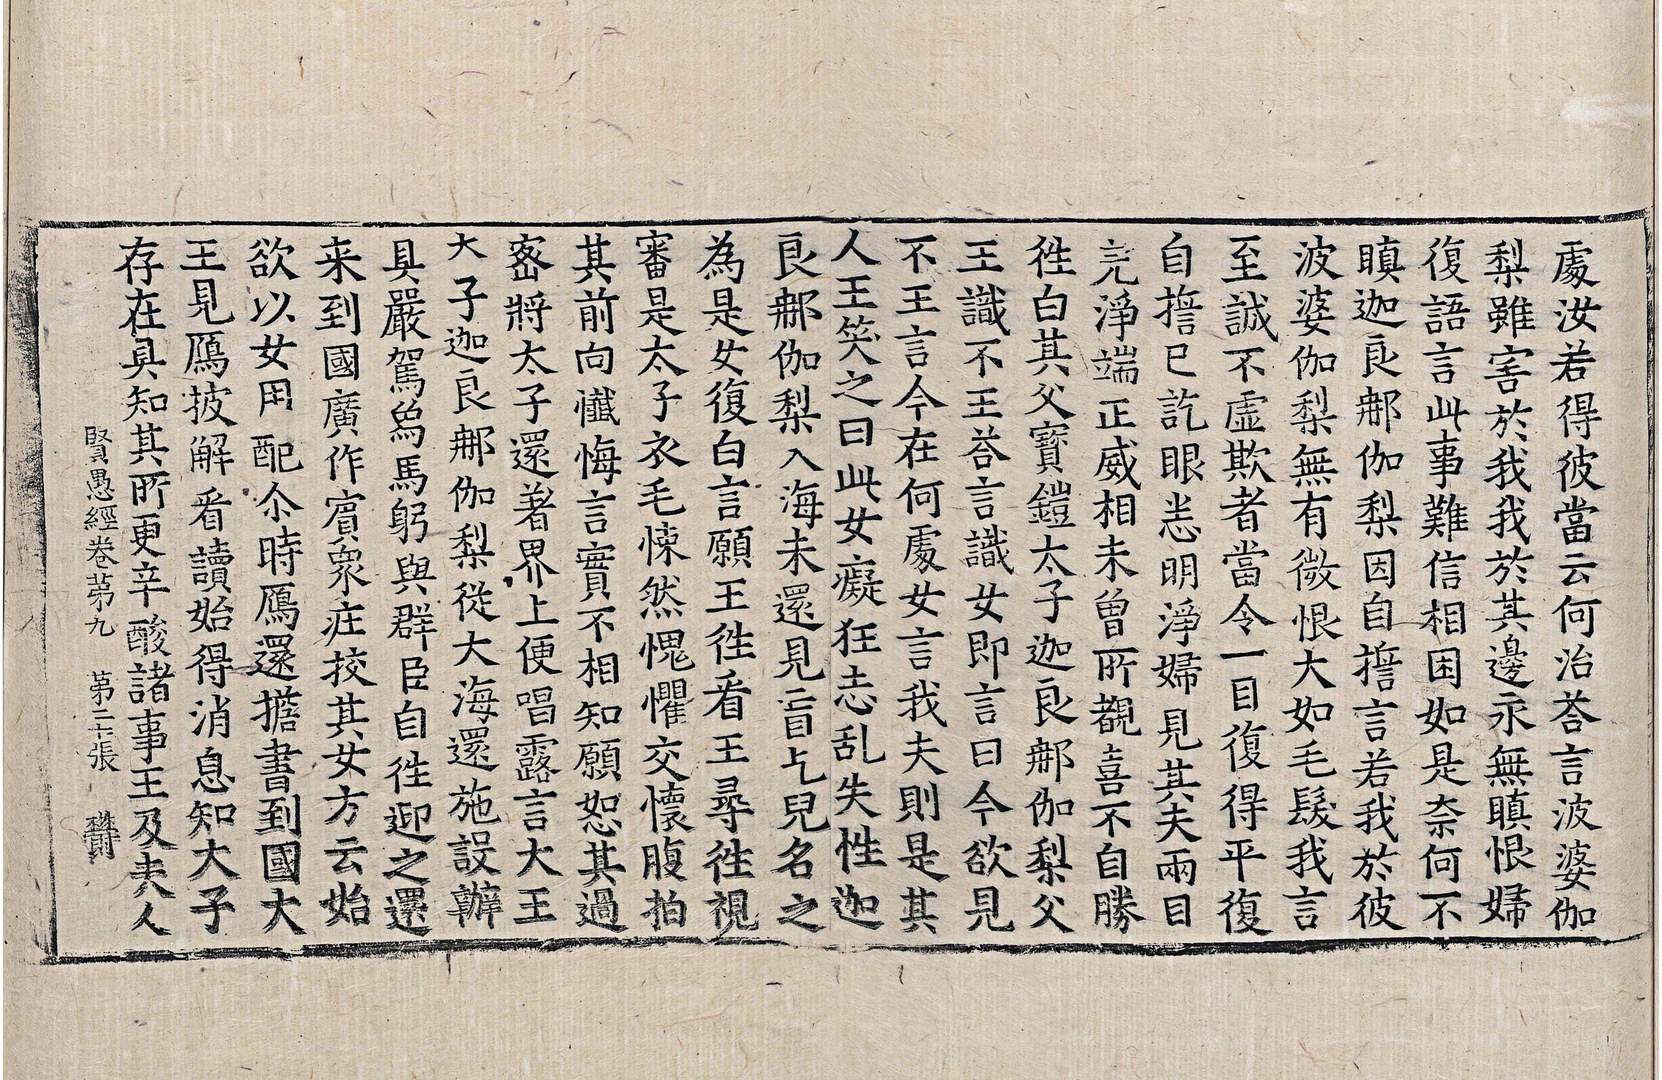 處汝若得彼當云何治荅言波婆伽
梨雖害於我我於其邊永無瞋恨婦
復語言此事難信相困如是奈何不
瞋迦良䣝伽梨因自擔言若我於彼
波婆伽梨無有微恨大如毛髮我言
至誠不虛欺者當令一目復得平復
自擔已訖眼恙明淨婦見其夫兩目
完淨端正威相未曾所覩喜不自勝
徃白其父寶鎧太子迦良䣝伽梨父
王識不王荅言識女即言曰今欲見
不王言今在何處女言我夫則是其
人王笑之曰此女癡狂志乱失性迦
良䣝伽梨入海未還見盲乞兒名之
為是女復白言願王徃看王尋徃視
審是太子衣毛悚然愧懼交懷腹拍
其前向懺悔言實不相知願恕其過
宻將太子還著界上便唱露言大王
大子迦良䣝伽梨從大海還施設辦
具嚴駕鳥馬躬與群臣自徃迎之還
来到國廣作賓衆庄挍其女方云始
欲以女用配尒時鴈還擔書到國大
王見鴈披解看讀始得消息知大子
存在具知其所更辛酸諸事王及夫人
賢愚經卷苐九 苐三十張